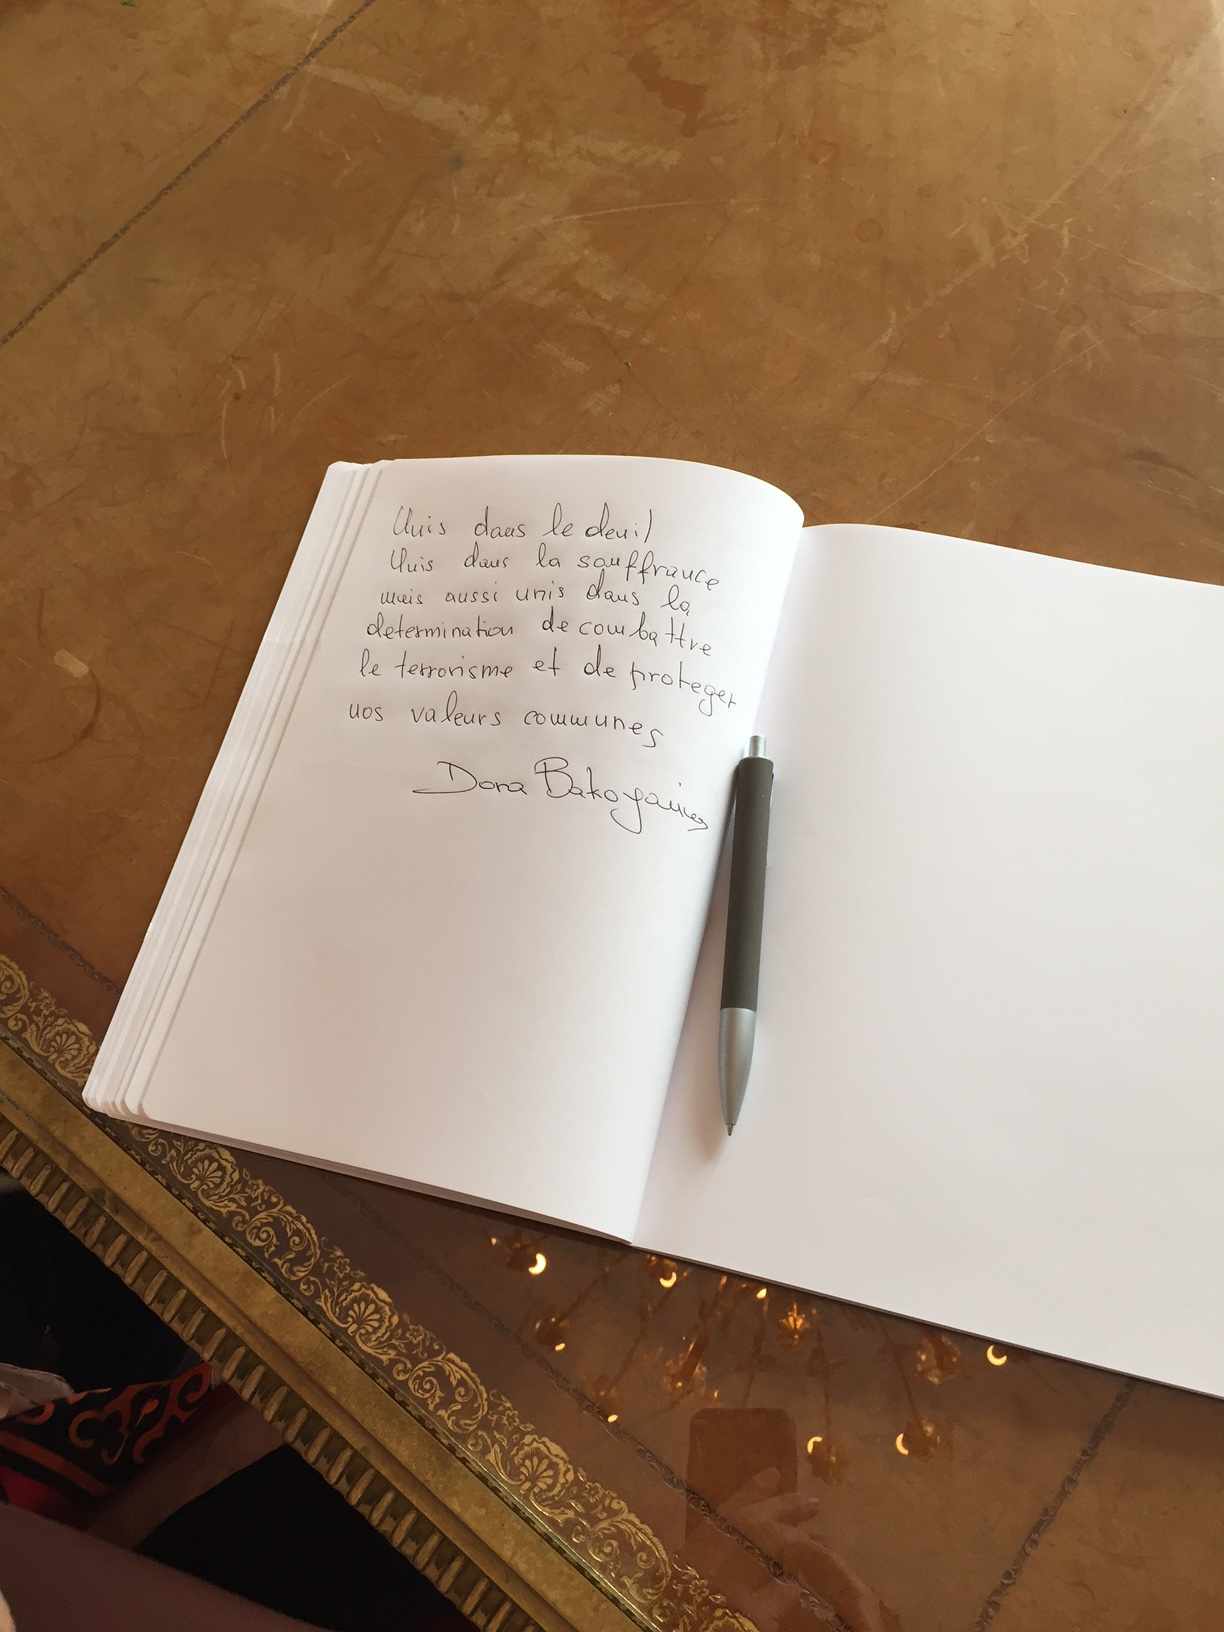 Unis dans le deuil
Unis dans la souffrance
mais aussi unis dans la
determination de combattre
le terrorisme et de proteger
nos valeurs communes
Dora Bakoyannis